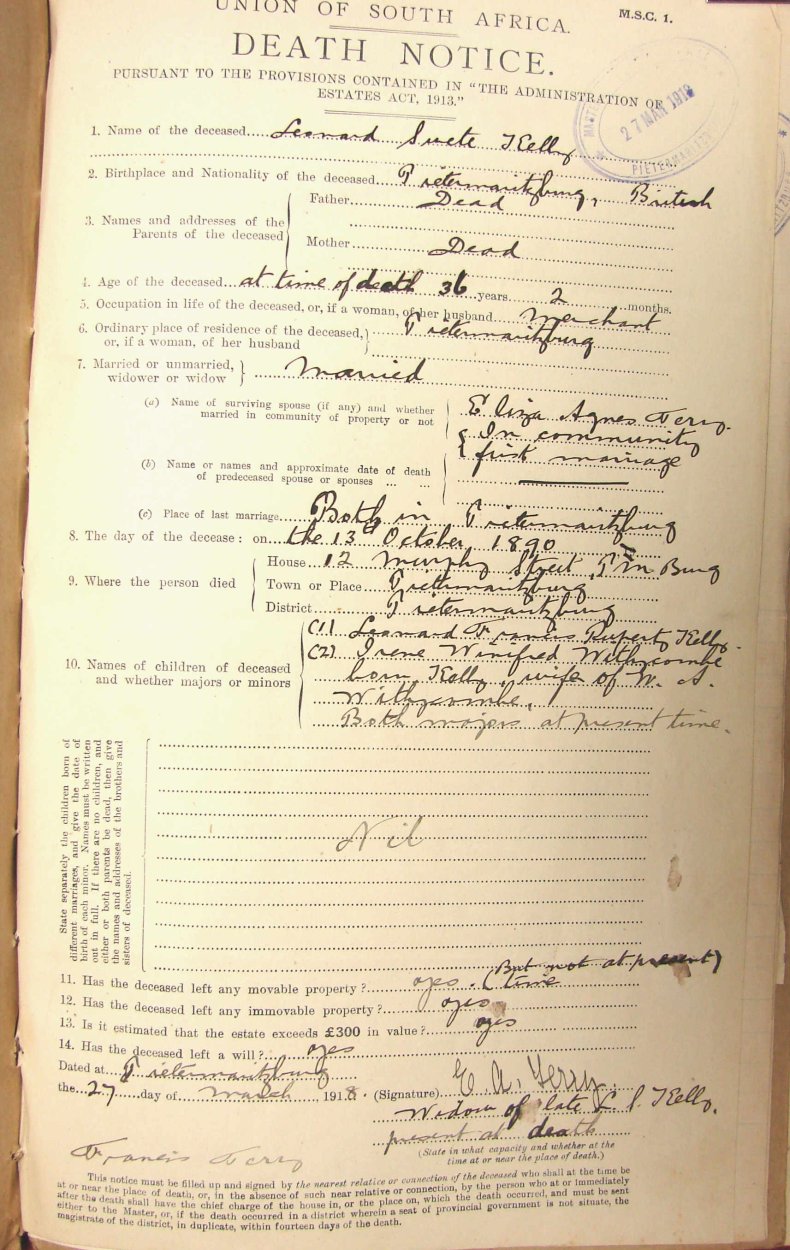 UNION OF SOUTH AFRICA.
M.S.C. 1.
DEATH NOTICE.
PURSUANT TO THE PROVISIONS CONTAINED IN "THE ADMINISTRATION OF
ESTATES ACT, 1913."
27 MAR 1918
1. Name of the deceased Leonard Suete Kelly
2. Birthplace and Nationality of the deceased Pietermaritzburg, British
3. Names and addresses of the
Parents of the deceased
Father Dead
Mother Dead
4. Age of the deceased at time of death 36 years 2 months.
5. Occupation in life of the deceased, or, if a woman, of her husband Merchant
6. Ordinary place of residence of the deceased,
or, if a woman, of her husband
Pietermaritzburg
7. Married or unmarried,
widower or widow
Married
(a) Name of surviving spouse (if any) and whether
married in community of property or not
Eliza Agnes Terry.
In community
first marriage
(b) Name or names and approximate date of death
of predeceased spouse or spouses ... ...
(c) Place of last marriage Both in Pietermaritzburg
8. The day of the decease: on the 13th October 1890
9. Where the person died
House 12 Murphy Street, P M Burg
Town or Place Pietermaritzburg
District Pietermaritzburg
10. Names of children of deceased
and whether majors or minors
(1) Leonard Francis Rupert Kelly.
(2) Irene Winifred Withycombe
born Kelly, wife of W. S.
Withycombe,
Both majors at present time.
State separately the children born of
different marriages, and give the date of
birth of each minor. Names must be written
out in full. If there are no children, and
either or both parents be dead, then give
the names and addresses of the brothers and
sisters of deceased.
Nil
11. Has the deceased left any movable property? yes. (But not at present)
time
12. Has the deceased left any immovable property? yes
13. Is it estimated that the estate exceeds £300 in value? yes
14. Has the deceased left a will? yes
Dated at Pietermaritzburg
the 27 day of March 1918.
(Signature) E. A. Terry
Widow of late L. S. Kelly.
present at death
(State in what capacity and whether at the
time at or near the place of death.)
Francis Terry
This notice must be filled up and signed by the nearest relative or connection of the deceased who shall at the time be
at or near the place of death, or, in the absence of such near relative or connection, by the person who at or immediately
after the death shall have the chief charge of the house in, or the place on, which the death occurred, and must be sent
either to the Master, or, if the death occurred in a district wherein a seat of provincial government is not situate, the
magistrate of the district, in duplicate, within fourteen days of the death.